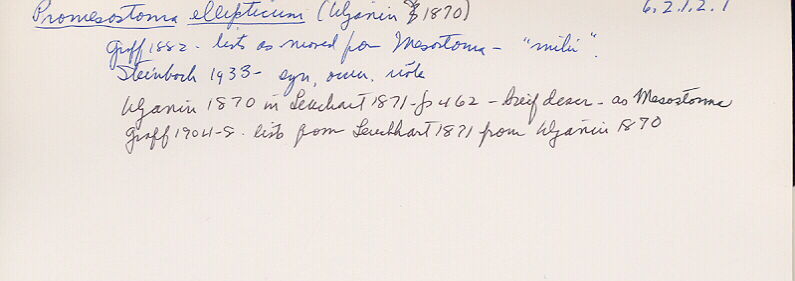 Promesostoma ellipticum (Uljanin 1870) 6.2.1.2.1
Graff 1882 - lists as moved from Mesostoma -
Steinboch 1933 - syn, occur, note
Uljanin 1870 in Leuckart 1871 - p 462 - breif descr - as Mesostoma
Graff 1904-8 - lists from Leuckhart 1871 from Uljanin 1870